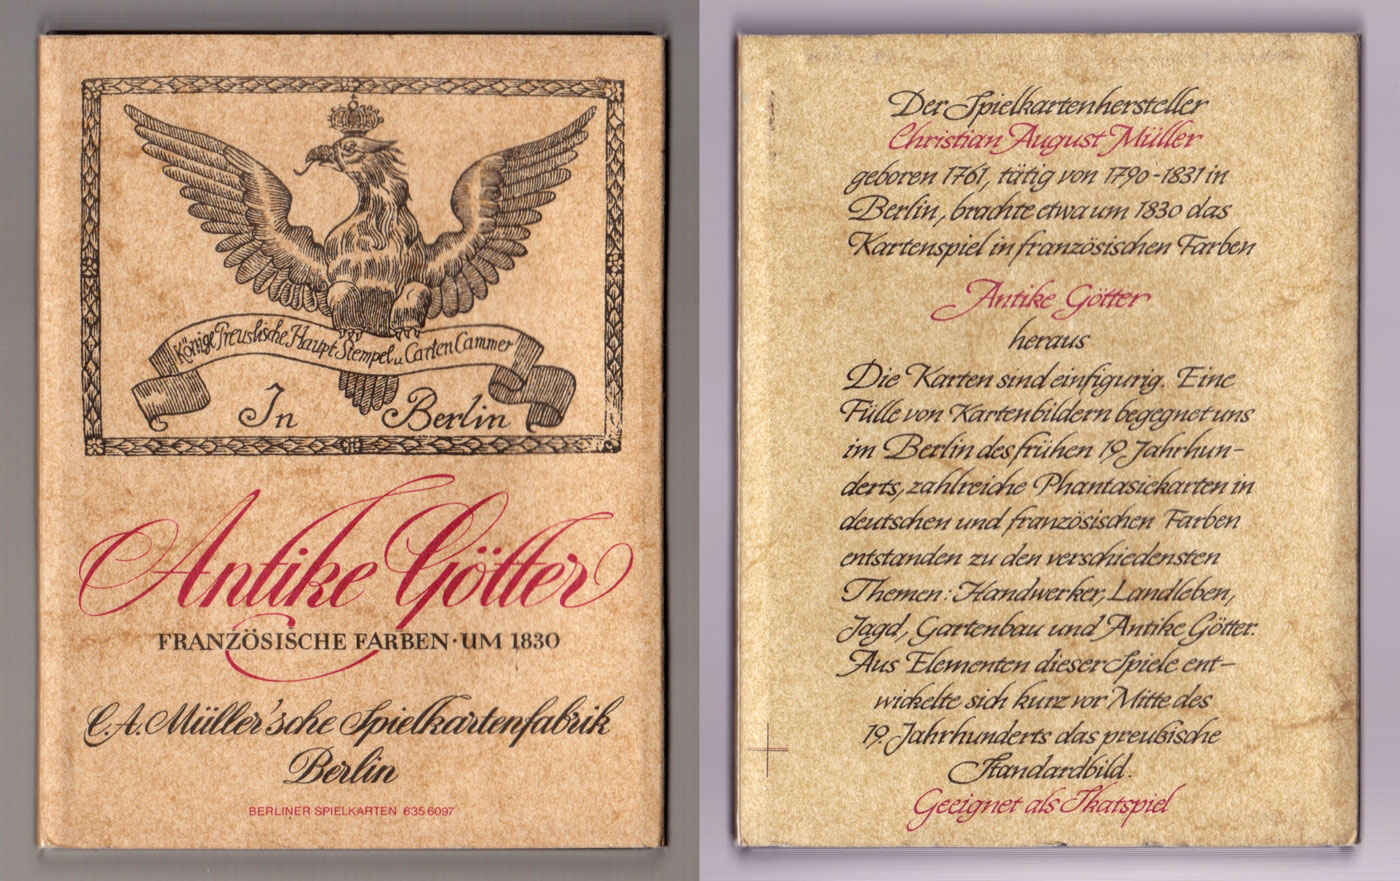 Könige Preuslische Haupt Stempel u. Carten Cammer
In Berlin
Antike Götter
FRANZÖSISCHE FARBEN · UM 1830
C.A. Müller'sche Spielkartenfabrik
Berlin
BERLINER SPIELKARTEN 635 6097
Der Spielkartenhersteller
Christian August Müller
geboren 1761, tätig von 1790-1831 in
Berlin, brachte etwa um 1830 das
Kartenspiel in französischen Farben
Antike Götter
heraus
Die Karten sind einfigurig. Eine
Fülle von Kartenbildern begegnet uns
im Berlin des frühen 19. Jahrhun-
derts, zahlreiche Phantasiekarten in
deutschen und französischen Farben
entstanden zu den verschiedensten
Themen: Handwerker, Landleben,
Jagd, Gartenbau und Antike Götter.
Aus Elementen dieser Spiele ent-
wickelte sich kurz vor Mitte des
19. Jahrhunderts das preußische
Standardbild.
Geeignet als Skatspiel